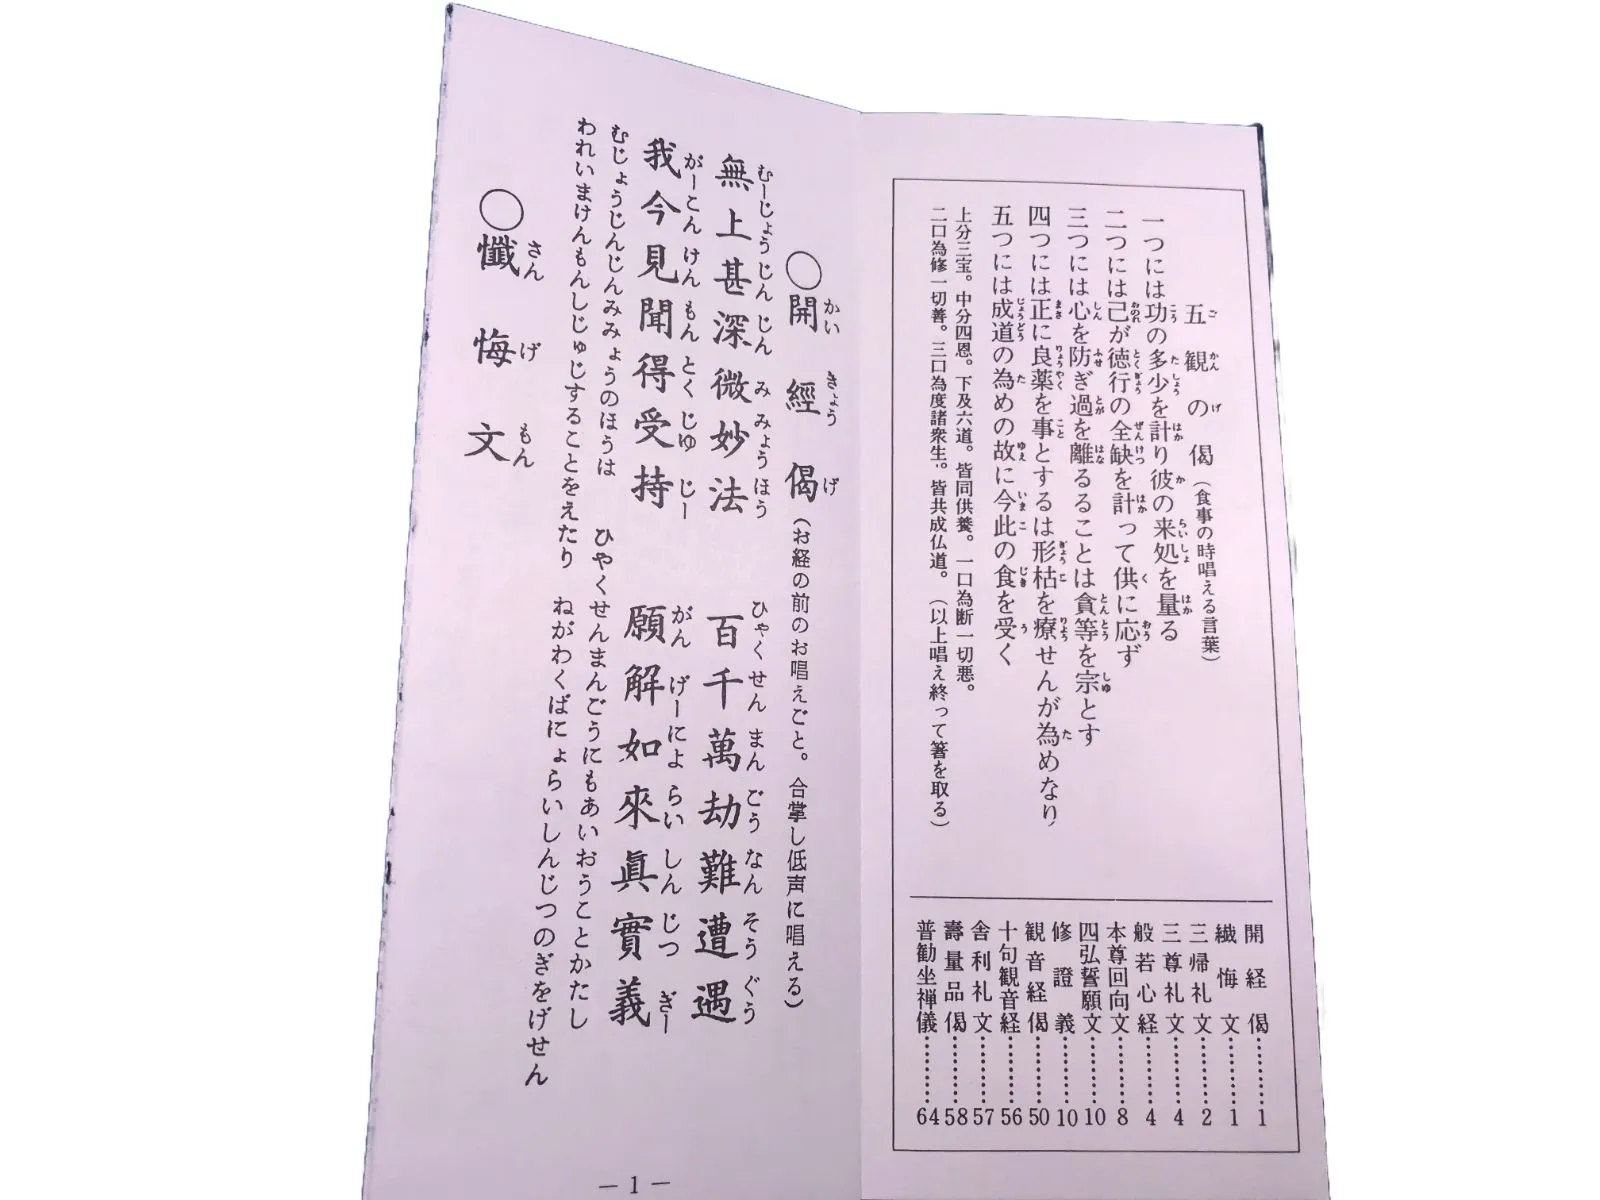 五観の偈(食事の時唱える言葉)
一つには功の多少を計り彼の来処を量る
二つには己が徳行の全缺を計って供に応ず
三つには心を防ぎ過を離るることは貪等を宗とす
四つには正に良薬を事とするは形枯を療せんが為めなり、
五つには成道の為めの故に今此の食を受く
上分三宝。中分四恩。下及六道。皆同供養。一口為断一切悪。
二口為修一切善。三口為度諸衆生。皆共成仏道。(以上唱え終って箸を取る)
開経偈………1
懺悔文………1
三帰礼文………2
三尊礼文………4
般若心経………4
本尊回向文………8
四弘誓願文………10
修證義………10
観音経偈………50
十句観音経………56
舎利礼文………57
壽量品偈………58
普勧坐禅儀………64
○開經偈(お経の前のお唱えごと。合掌し低声に唱える)
かいきょうげ
無上甚深微妙法 百千萬劫難遭遇
むーじょうじんじんみみょうほう ひゃくせんまんごうなんそうぐう
我今見聞得受持 願解如來眞實義
がーこんけんもんとくじゅじー がんげーにょらいしんじつぎー
むじょうじんじんみみょうのほうは ひやくせんまんごうにもあいおうことかたし
われいまけんもんしじゅじすることをえたり ねがわくばにょらいしんじつのぎをげせん
○懺悔文
さんげもん
—1—